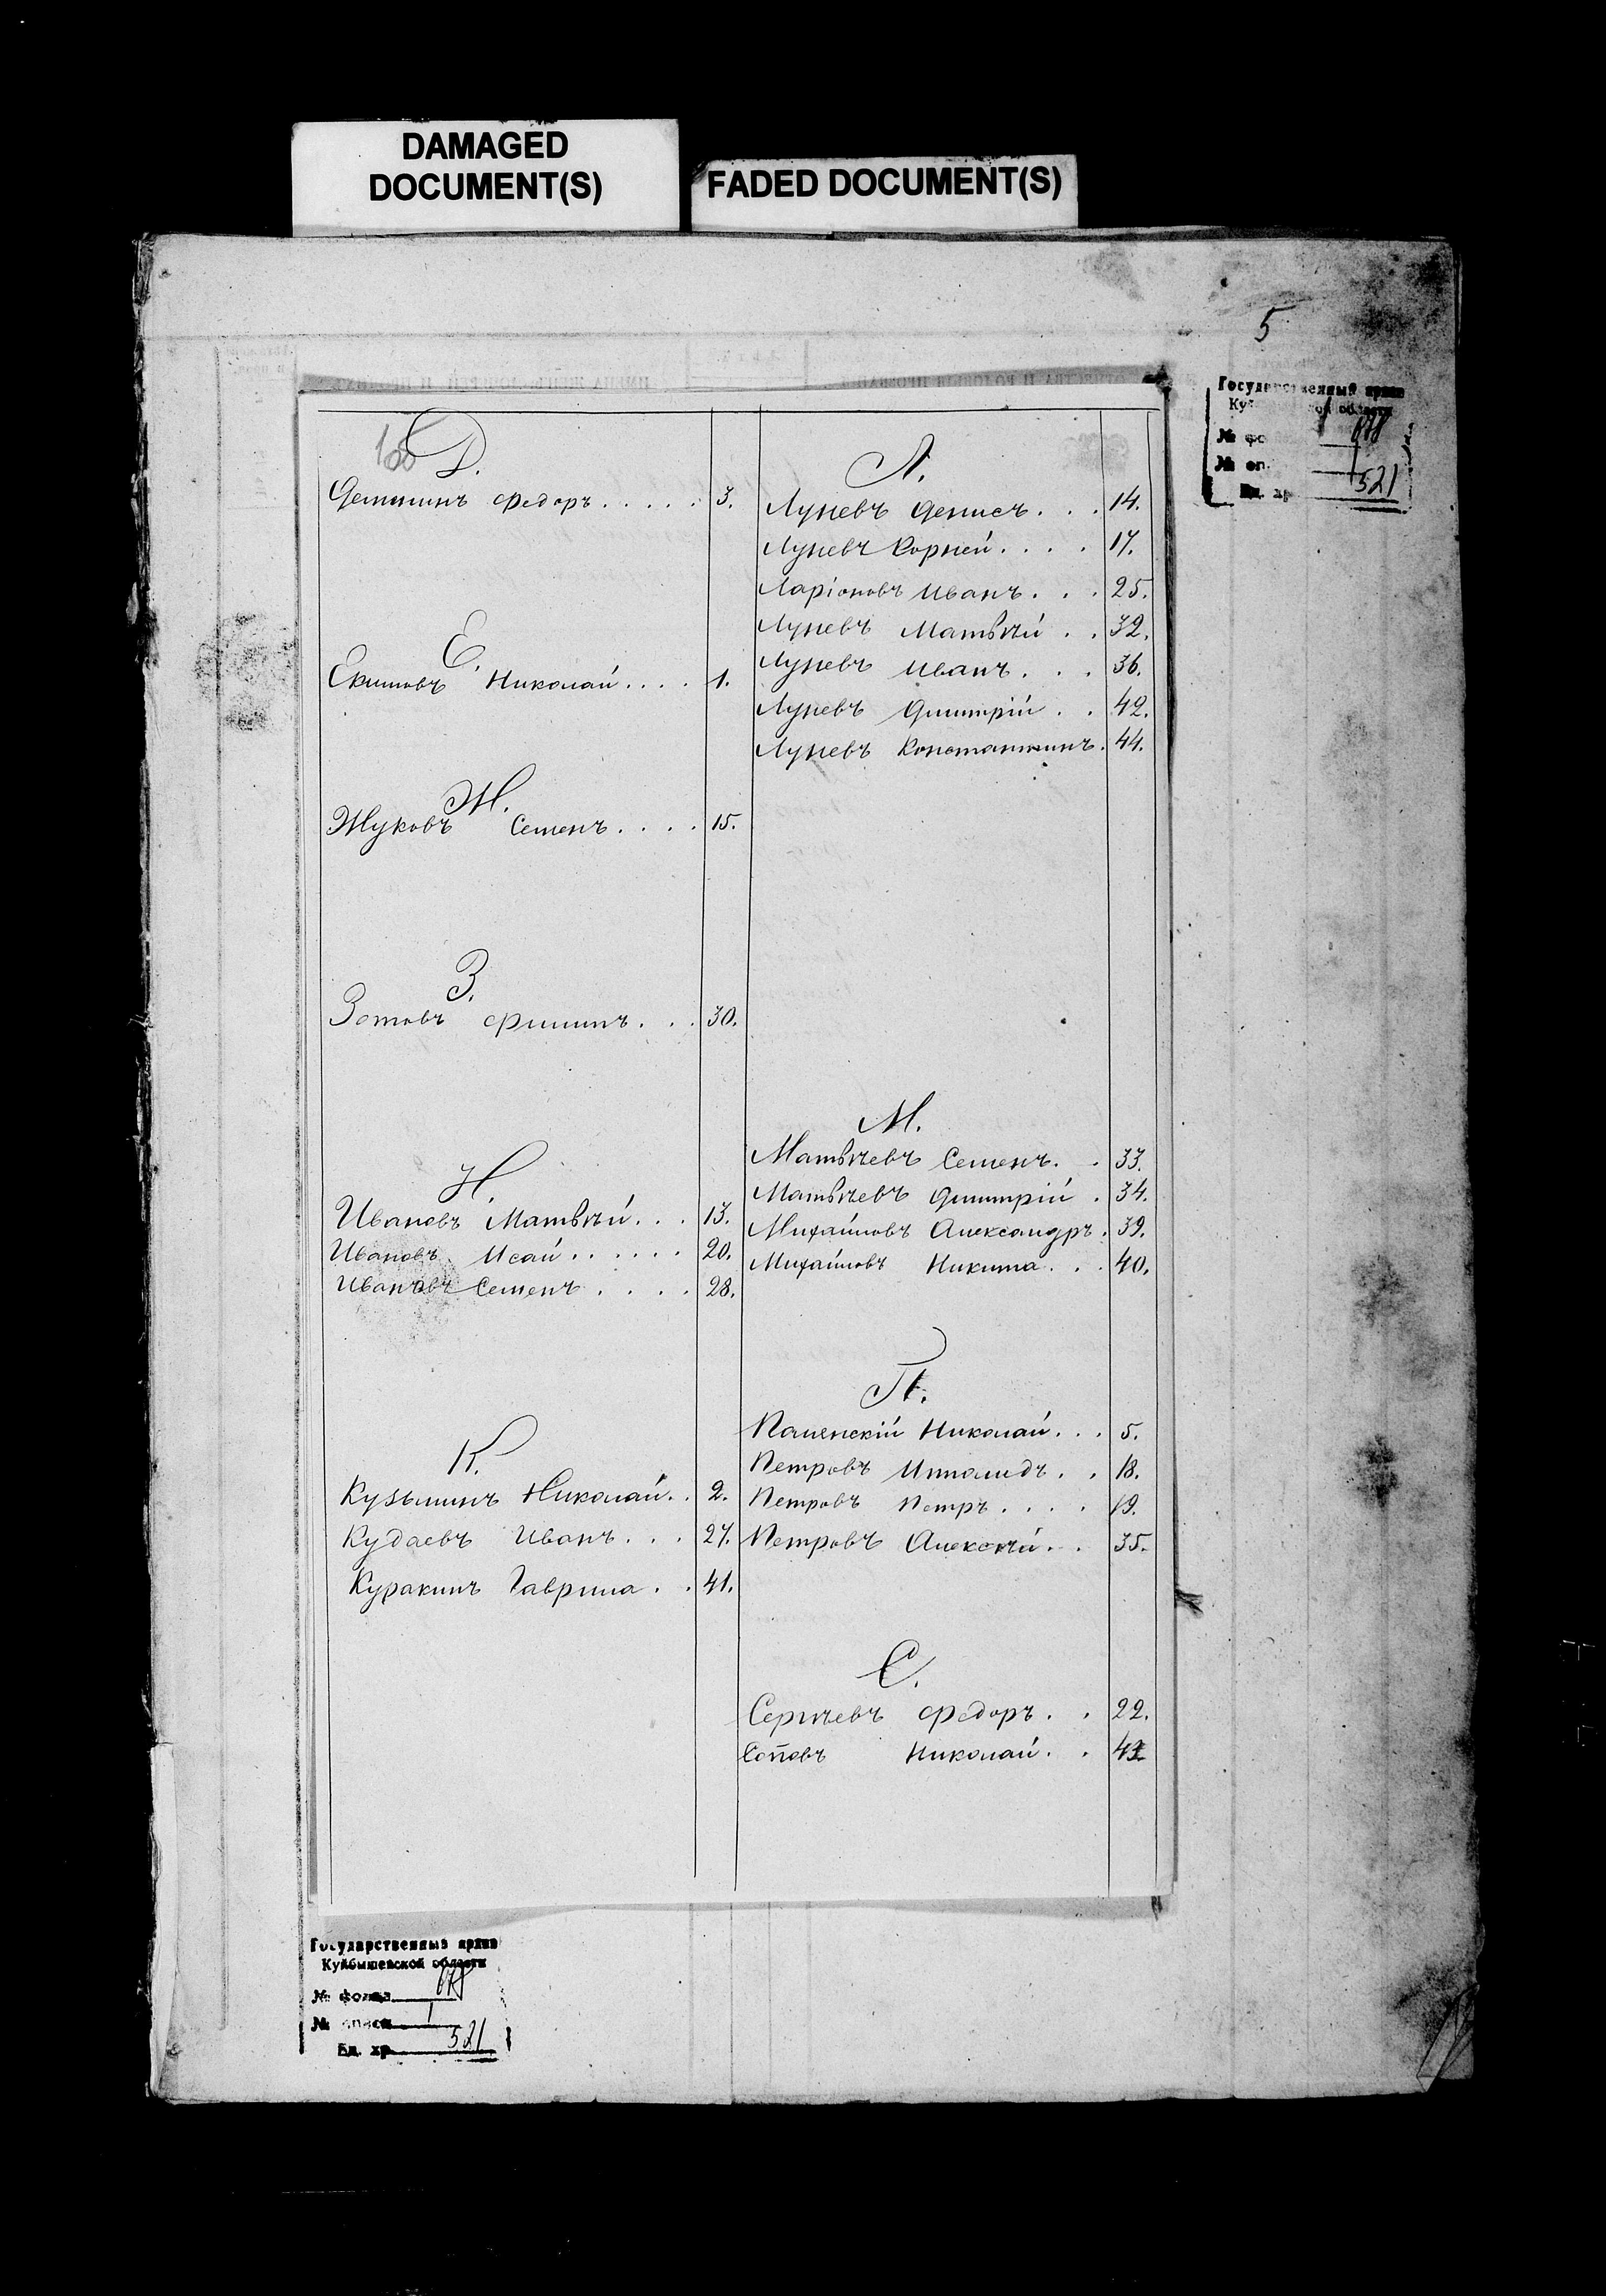 DAMAGED
DOCUMENT(S)
FADED DOCUMENT(S)
5
Государственный архив
Ку области
№ ф 678
№ оп. 1
Ед. хр 521
Д.
Деминъ Федоръ..... 3.
Е.
Екимовъ Николай.... 1.
Ж.
Жуковъ Семенъ.... 15.
З.
Зотовъ Филипъ... 30.
И.
Ивановъ Матвѣй... 13.
Ивановъ Исай...... 20.
Ивановъ Семенъ.... 28.
К.
Кузьминъ Николай.. 2.
Кудаевъ Иванъ... 27.
Куракинъ Гаврила.. 41.
Л.
Луневъ Денисъ... 14.
Луневъ Корней.... 17.
Ларіоновъ Иванъ... 25.
Луневъ Матвѣй.. 32.
Луневъ Иванъ... 36.
Луневъ Дмитрій.. 42.
Луневъ Константинъ. 44.
М.
Матвѣевъ Семенъ.. 33.
Матвѣевъ Дмитрій. 34.
Михайловъ Александръ. 39.
Михайловъ Никита... 40.
П.
Николай... 5.
Петровъ Ипполидъ.. 18.
Петровъ Петръ.... 19.
Петровъ Алексѣй.. 35.
С.
Сергѣевъ Федоръ.. 22.
Николай..
Государственный архив
Куйбышевской области
№ фонда 678
№ описи 1
Ед. хр. 521